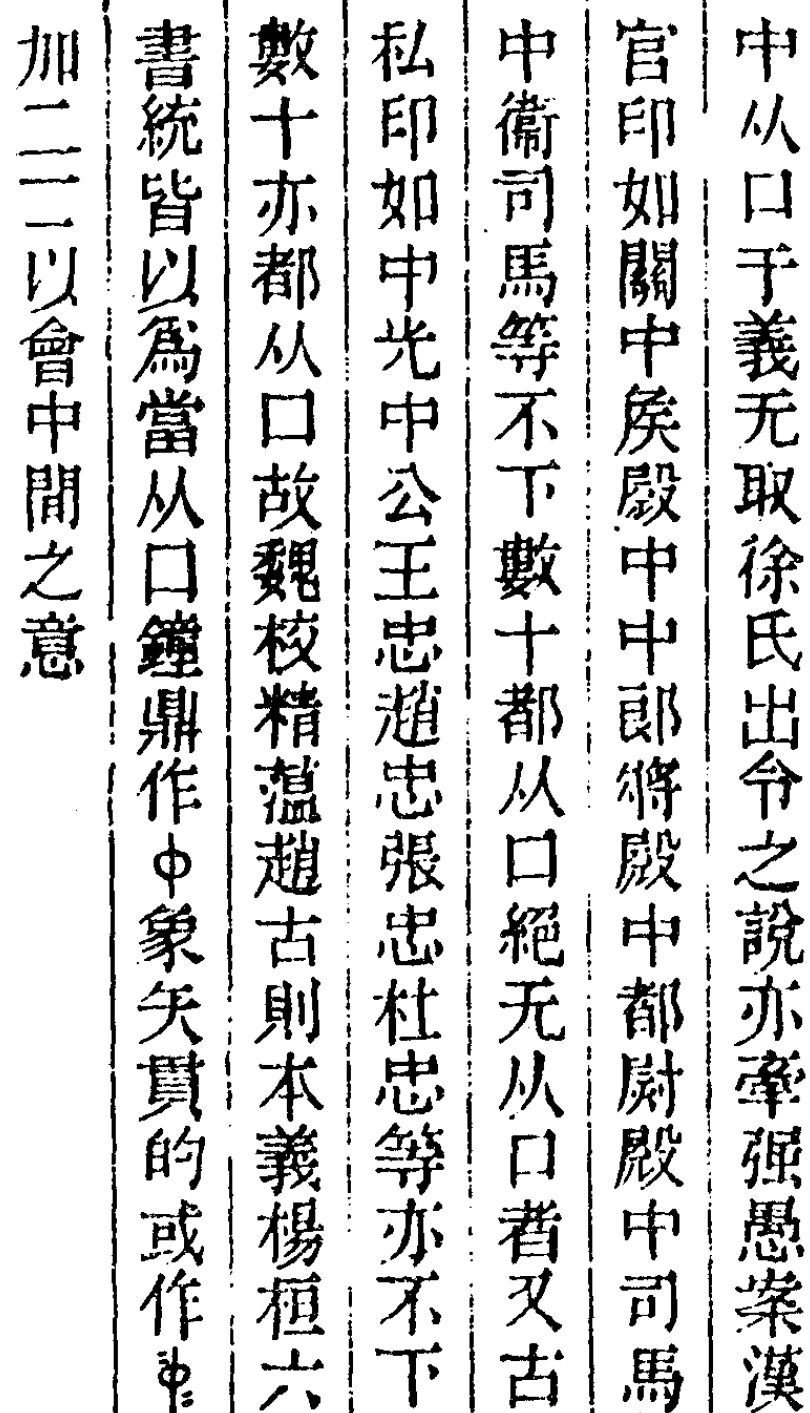 中从口于義无取徐氏出令之說亦牽强愚案漢
官印如關中矦殿中中郎將殿中都尉殿中司馬
中衞司馬等不下數十都从口絕无从口者又古
私印如中光中公王忠趙忠張忠杜忠等亦不下
數十亦都从口故魏校精薀趙古則本義楊桓六
書統皆以爲當从口鐘鼎作中象矢貫的或作
加二二以會中間之意